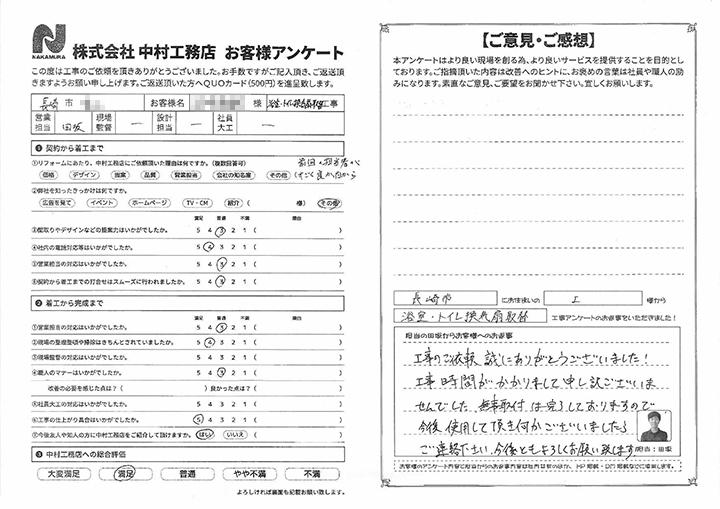 NAKAMURA
株式会社 中村工務店 お客様アンケート
この度は工事のご依頼を頂きありがとうございました。お手数ですがご記入頂き、ご返送頂
きますようお願い申し上げます。ご返送頂いた方へQUOカード(500円)を進呈致します。
長崎 市 お客様名 様 浴室・トイレ換気扇取替工事
営業担当 田坂 現場監督 ー 設計担当 ー 社員大工 ー
❶ 契約から着工まで
①リフォームにあたり、中村工務店にご依頼頂いた理由は何ですか。(複数回答可)
価格 デザイン 提案 品質 営業担当 会社の知名度 その他
②弊社を知ったきっかけは何ですか。
広告を見て イベント ホームページ TV・CM 紹介( 様) その他
満足 普通 不満 理由
③間取りやデザインなどの提案力はいかがでしたか。 5 4 3 2 1 ( )
④社内の電話対応等はいかがでしたか。 5 4 3 2 1 ( )
⑤営業担当の対応はいかがでしたか。 5 4 3 2 1 ( )
⑥契約から着工までの打合せはスムーズに行われましたか。 5 4 3 2 1 ( )
❷ 着工から完成まで
満足 普通 不満 理由
①営業担当の対応はいかがでしたか。 5 4 3 2 1 ( )
②現場の整理整頓や掃除はきちんとされていましたか。 5 4 3 2 1 ( )
③現場監督の対応はいかがでしたか。 5 4 3 2 1 ( )
④職人のマナーはいかがでしたか。 5 4 3 2 1 ( )
改善の必要を感じた点は?( )良かった点は?( )
⑤社員大工の対応はいかがでしたか。 5 4 3 2 1 ( )
⑥工事の仕上がり具合はいかがですか。 5 4 3 2 1 ( )
⑦今後友人や知人の方に中村工務店をご紹介して頂けますか。 はい いいえ ( )
❸ 中村工務店への総合評価
大変満足 満足 普通 やや不満 不満
よろしければ裏面も記載お願い致します。
【ご意見・ご感想】
本アンケートはより良い現場を創る為、より良いサービスを提供することを目的とし
ております。ご指摘頂いた内容は改善へのヒントに、お褒めの言葉は社員や職人の励
みになります。素直なご意見、ご要望をお聞かせ下さい。宜しくお願いします。
長崎市 にお住まいの 工 様から
浴室・トイレ換気扇取替 工事アンケートのお返事をいただきました!
担当の田坂からお客様へのお返事
工事のご依頼 誠にありがとうございました!
工事時間がかかりまして申し訳ございま
せんでした。無事取付は完了しておりますので
今後使用して頂き何かございましたら
ご連絡下さい。今後ともよろしくお願い致します。
担当:田坂